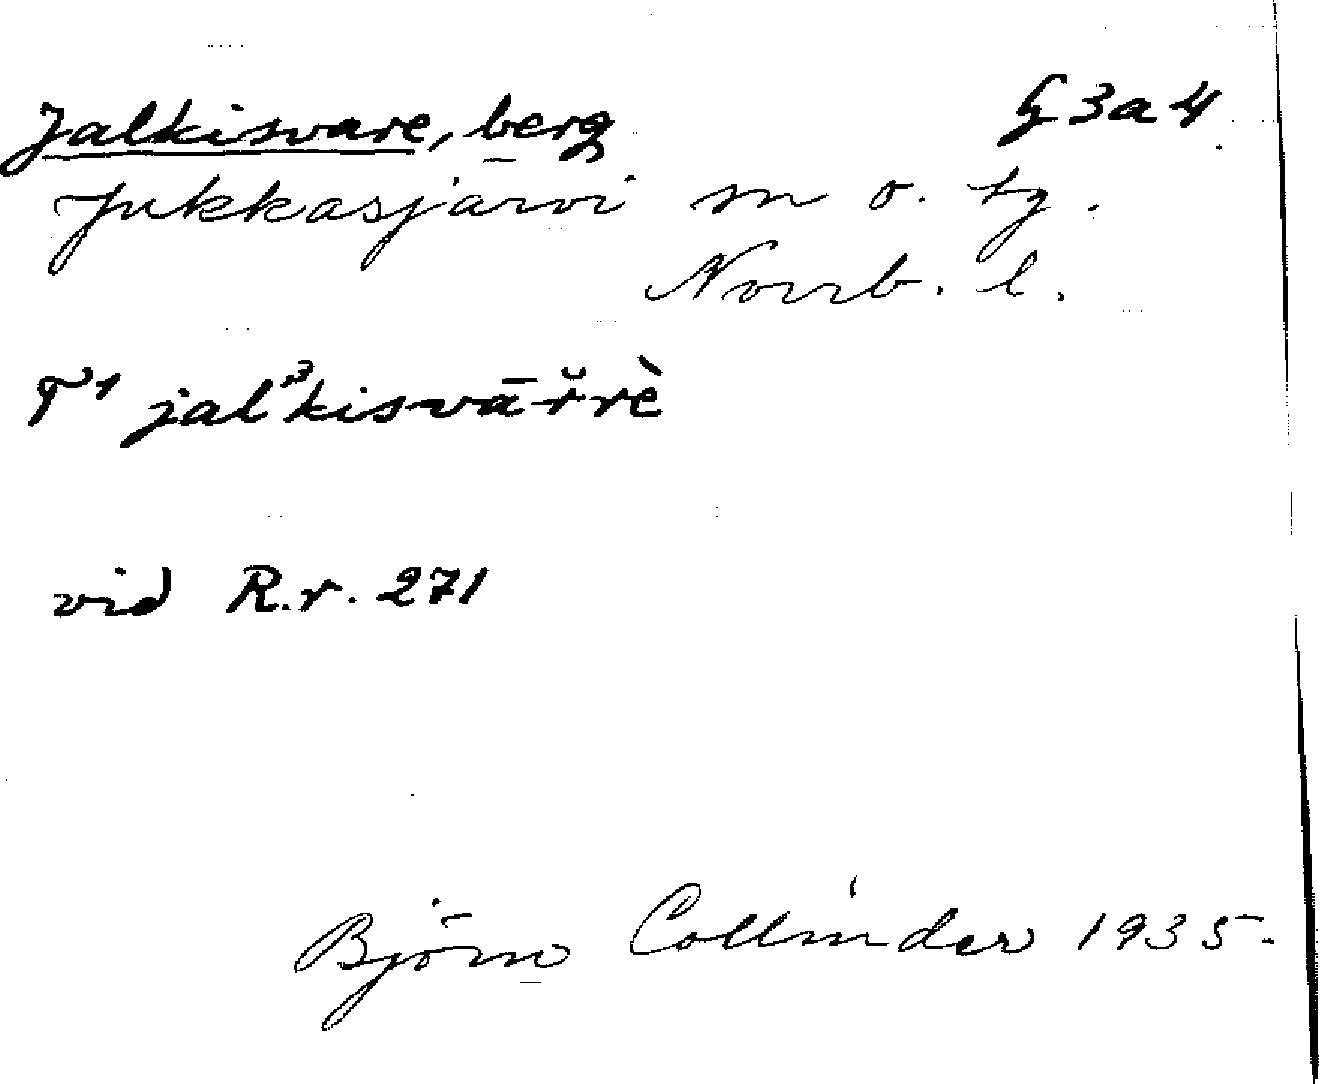 Jalkisvare, berg § 3a4
Jukkasjärvi sn o. tg.
Norrb. l.
T¹ jal³kisvār̆rè
vid R.r. 271
Björn Collinder 1935.